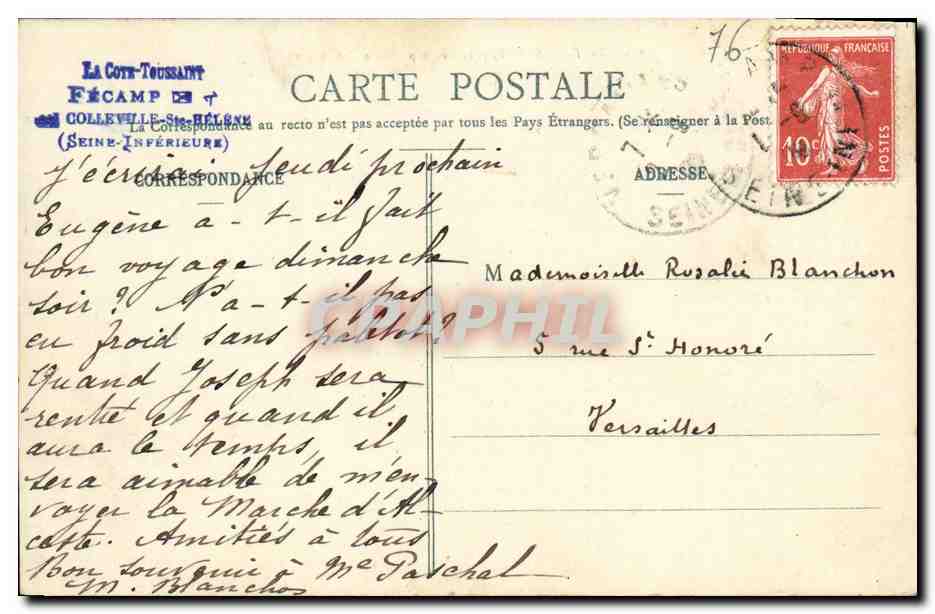 76
RÉPUBLIQUE FRANÇAISE
10c
POSTES
LA COTE-TOUSSAINT
FÉCAMP
COLLEVILLE-Ste-HÉLÈNE
(SEINE-INFÉRIEURE)
CARTE POSTALE
La Correspondance au recto n'est pas acceptée par tous les Pays Étrangers. (Se renseigner à la Poste
CORRESPONDANCE
ADRESSE
SEINE
J'écrirai jeudi prochain
Eugène a-t-il fait
bon voyage dimanche
soir? N'a-t-il pas
eu froid sans paletot?
Quand Joseph sera
rentré et quand il
aura le temps, il
sera aimable de m'en-
voyer la Marche d'Al-
ceste. Amitiés à tous
Bon souvenir à Me Paschal
M. Blanchon
Mademoiselle Rosalie Blanchon
5 rue St Honoré
Versailles
CPAPHIL